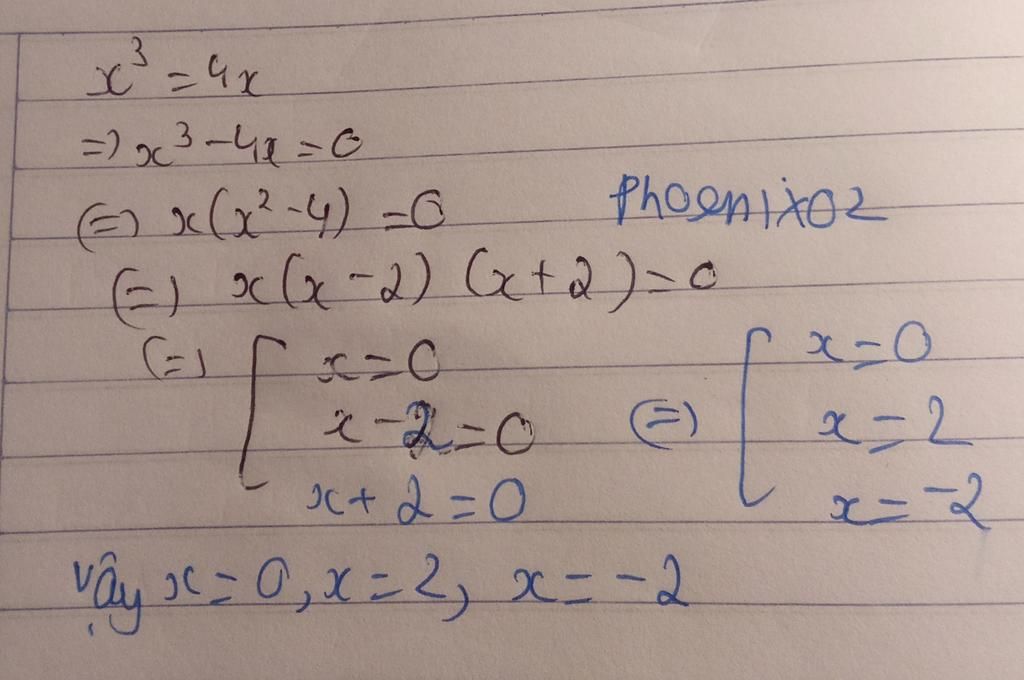 x³ = 4x
=) x³ - 4x = 0
(=) x(x² - 4) = 0
Phoenix02
(=) x(x - 2) (x + 2) = 0
(=) [ x = 0 (=) [ x = 0
x - 2 = 0 x = 2
x + 2 = 0 x = -2
Vậy x = 0, x = 2, x = -2